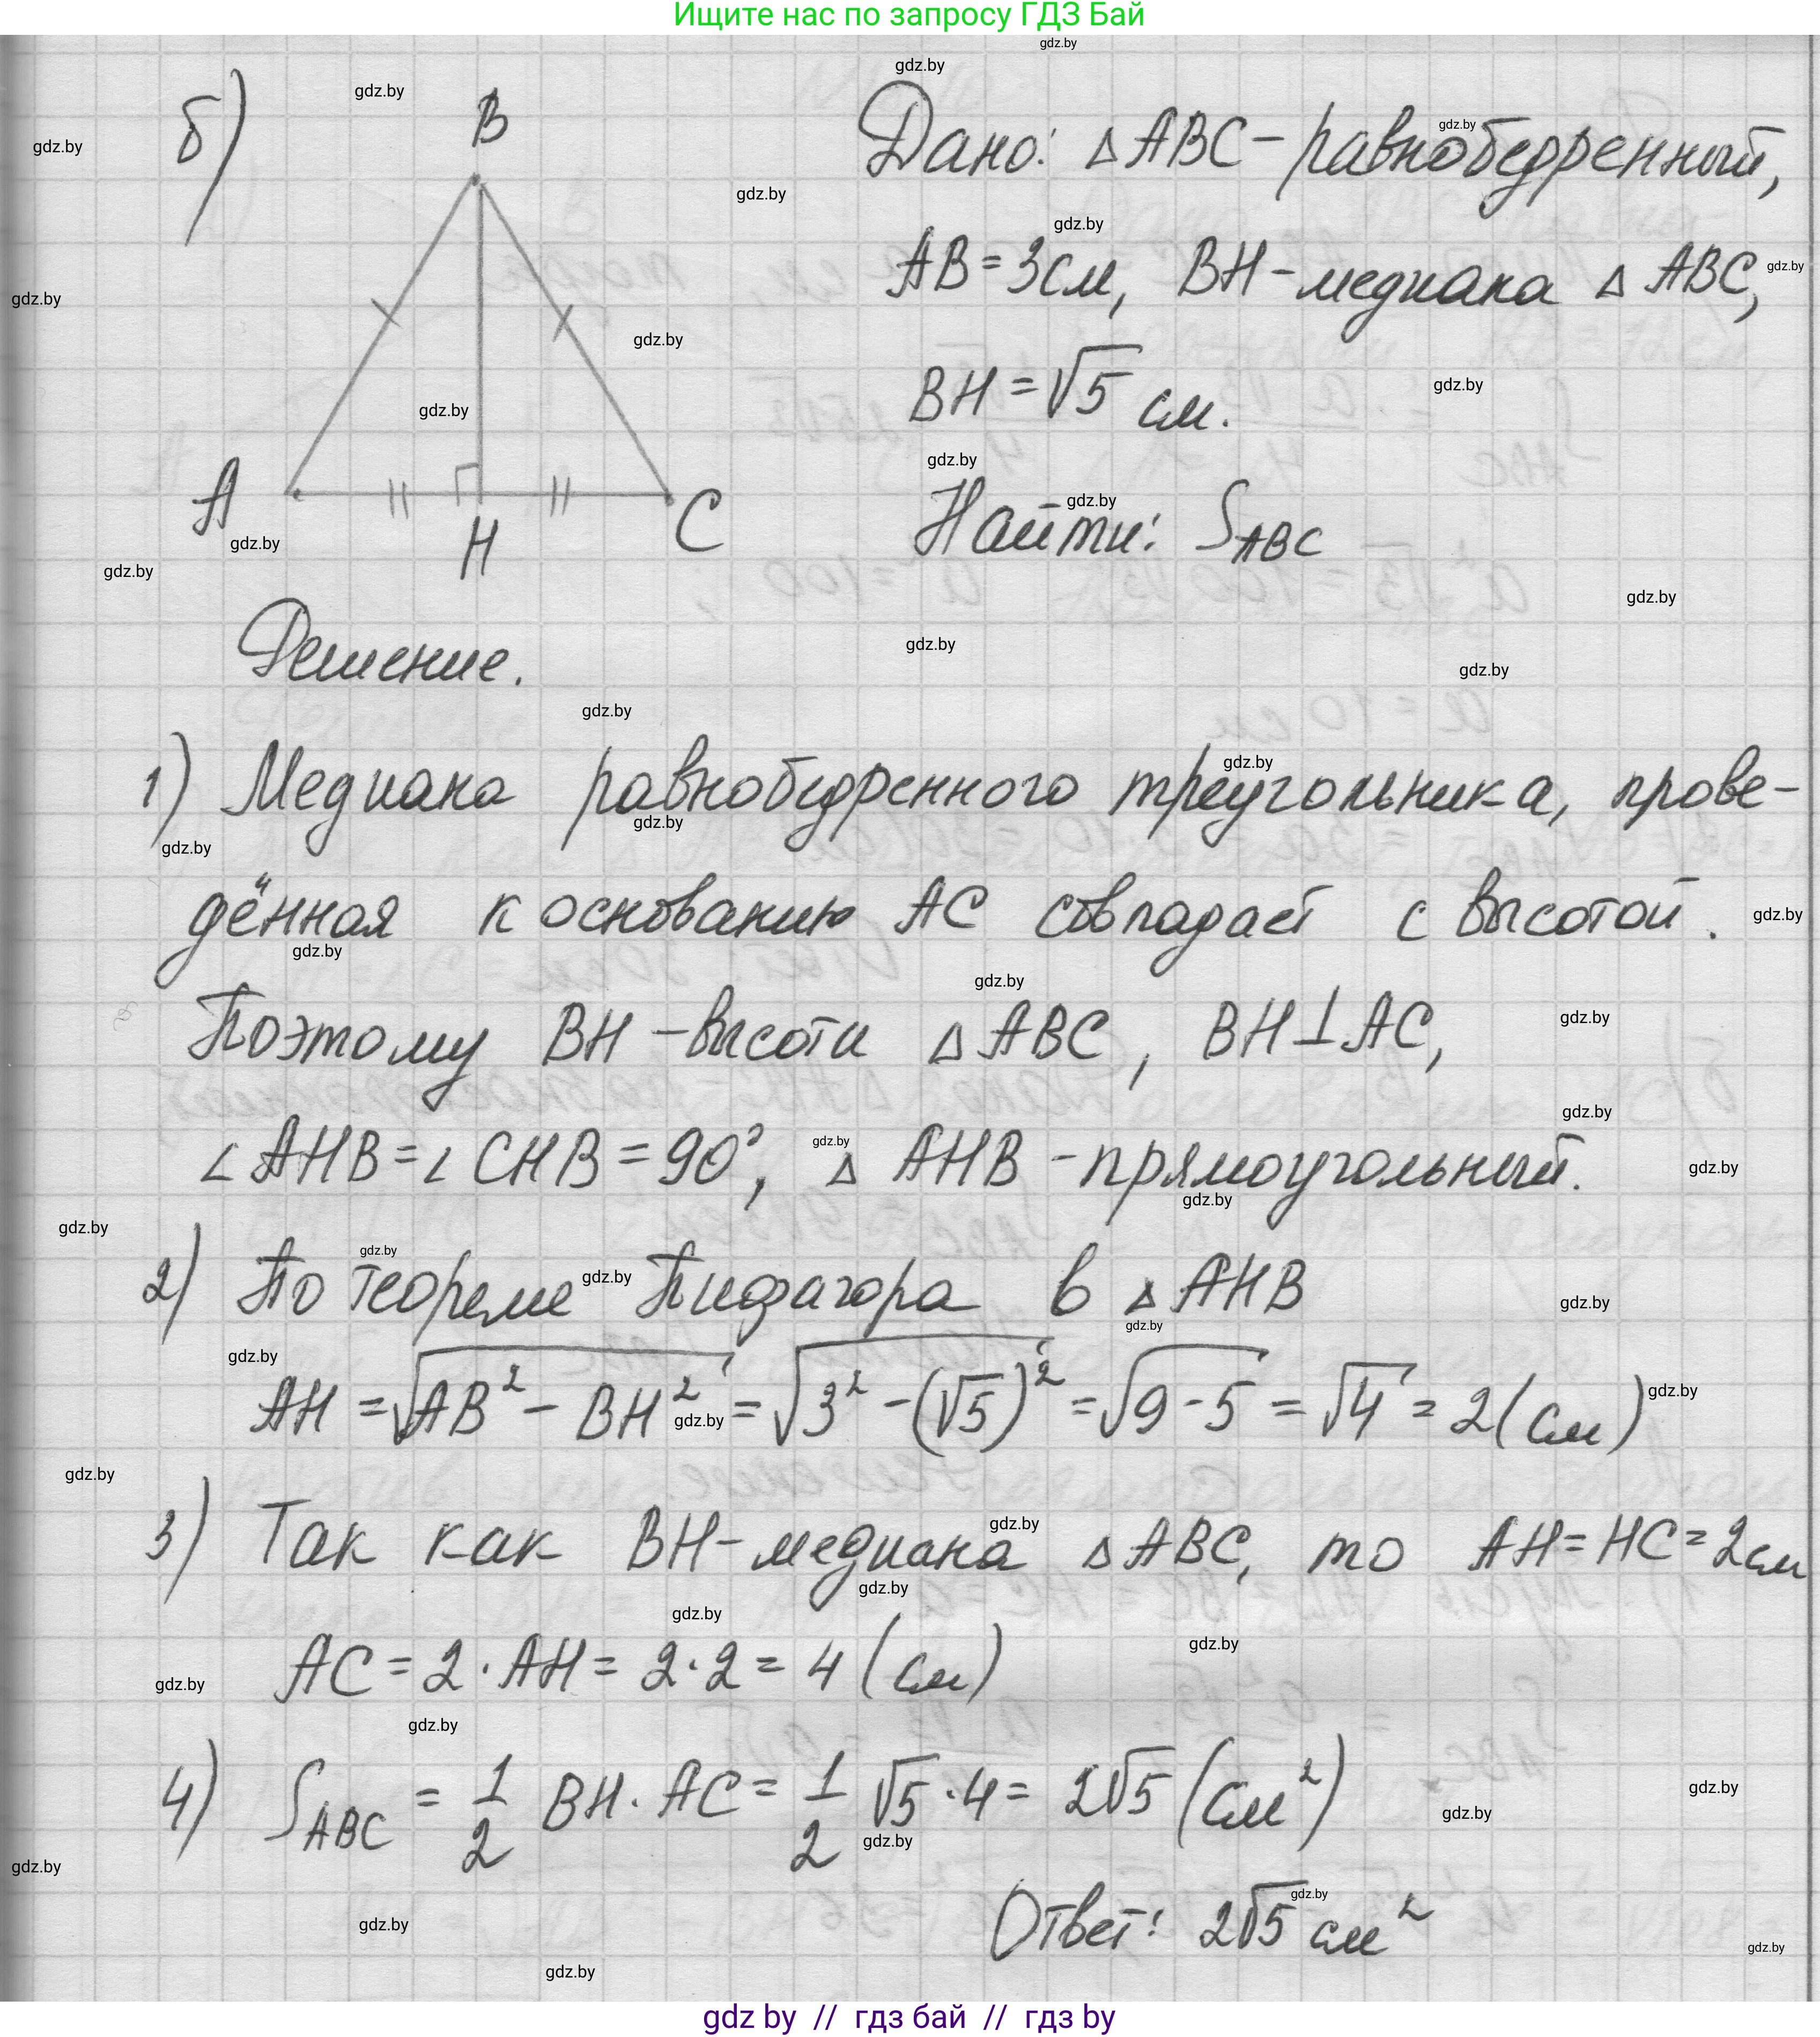 Ищите нас по запросу ГДЗ Бай
б)
B
A
H
C
Дано: △ABC - равнобедренный,
AB = 3см, BH - медиана △ABC,
BH = √5 см.
Найти: S_ABC
Решение.
1) Медиана равнобедренного треугольника, прове-
дённая к основанию AC совпадает с высотой.
Поэтому BH - высота △ABC, BH⊥AC,
∠AHB = ∠CHB = 90°, △AHB - прямоугольный.
2) По теореме Пифагора в △AHB
AH = √(AB² - BH²) = √(3² - (√5)²) = √(9-5) = √4 = 2 (см)
3) Так как BH - медиана △ABC, то AH = HC = 2см
AC = 2 · AH = 2 · 2 = 4 (см)
4) S_ABC = 1/2 BH · AC = 1/2 √5 · 4 = 2√5 (см²)
Ответ: 2√5 см²
gdz by // гдз бай // гдз by